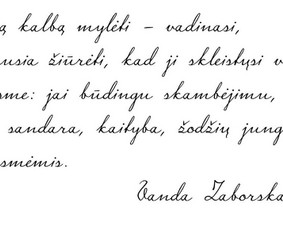 ą kalbą mylėti – vadinasi,
usia žiūrėti, kad ji skleistųsi v
sme: jai būdingu skambėjimu,
sandara, kaityba, žodžių jung
smėmis.
Vanda Zaborska